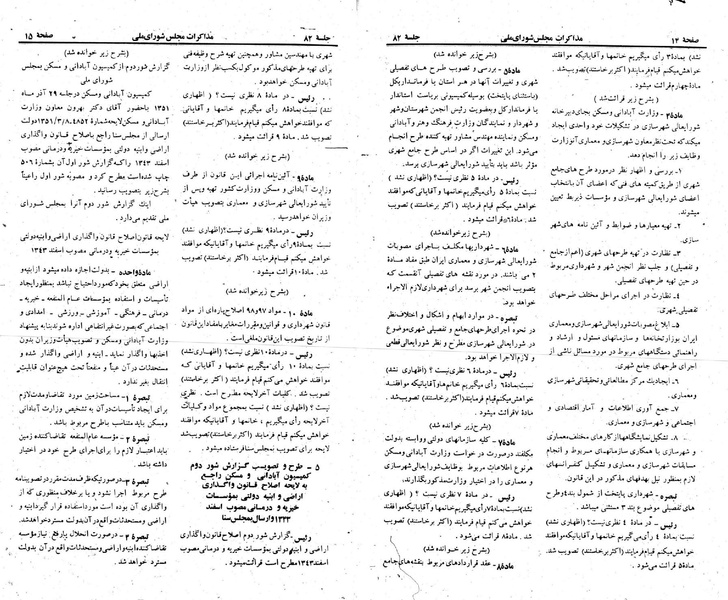 صفحه ۱۲ مذاکرات مجلس شورای ملی جلسه ۸۲
نشد) بماده۳ رأی میگیریم خانمها و آقایانیکه موافقند
خواهش میکنم قیام فرمایند (اکثر برخاستند) تصویب شد.
ماده چهارم قرائت میشود.
(بشرح زیر قرائت شد)
ماده۴ - وزارت آبادانی و مسکن بجای دبیرخانه
شورایعالی شهرسازی در تشکیلات خود واحدی ایجاد
میکند که تحت نظر معاون شهرسازی و معماری آن وزارت
وظایف زیر را انجام دهد.
۱- بررسی و اظهار نظر در مورد طرح های جامع
شهری از طریق کمیته های فنی که اعضای آن با انتخاب
اعضای شورایعالی و مؤسسات ذیربط تعیین
میشوند.
۲- تهیه معیارها و ضوابط و آئین نامه های شهر
سازی.
۳- نظارت در تهیه طرحهای شهری (اعم از جامع
و تفصیلی) و جلب نظر انجمن شهر و شهرداری مربوط
در حین تهیه طرحهای تفصیلی.
۴- نظارت در اجرای مراحل مختلف طرحهای
تفصیلی شهری.
۵- ابلاغ مصوبات شورایعالی شهرسازی و معماری
ایران بوزارتخانه ها و سازمانها و مؤسسات و ارشاد و
راهنمائی دستگاههای مربوط در مورد مسائل ناشی از
اجرای طرحهای جامع شهری.
۶- ایجاد یک مرکز مطالعاتی و تحقیقاتی شهرسازی
و معماری.
۷- جمع آوری اطلاعات و آمار اقتصادی و
اجتماعی و شهرسازی و معماری.
۸- تشکیل نمایشگاهها از کارهای مختلف معماری
و شهرسازی با همکاری سازمانهای مربوط و انجام
مسابقات شهرسازی و معماری و تشکیل کنفرانسهای
لازم بمنظور نیل بهدفهای مذکور در این قانون.
تبصره - شهرداری پایتخت از شمول بند ۴ و طرح
تفصیلی موضوع بند ۳ مستثنی میباشد.
رئیس - در ماده ۴ نظری نیست؟ (اظهاری نشد)
نسبت بماده ۴ رأی می گیریم خانمها و آقایانیکه موافقند
خواهش میکنم قیام فرمایند (اکثر برخاستند) تصویب شد.
ماده ۵ قرائت میشود.
(بشرح زیر خوانده شد)
ماده۵ - بررسی و تصویب طرح های تفصیلی
شهری و تغییرات آنها در هر استان یا فرمانداری کل
(باستثنای پایتخت) بوسیله کمیسیونی بریاست استاندار
یا فرماندار کل و بعضویت رئیس انجمن شهرستان و شهر
دار و نمایندگان وزارت فرهنگ و هنر و آبادانی
و مسکن و نماینده مهندس مشاور تهیه کننده طرح انجام
میشود. این تغییرات اگر در اساس طرح جامع شهری
مؤثر باشد باید بتأیید شورایعالی شهرسازی برسد.
رئیس - در ماده ۵ نظری نیست؟ (اظهاری نشد)
نسبت بماده ۵ رأی میگیریم خانمها و آقایانیکه موافقند
خواهش میکنم قیام فرمایند (اکثر برخاستند) تصویب شد.
ماده ۶ قرائت میشود.
(بشرح زیر خوانده شد)
ماده۶ - شهرداریها مکلف باجرای مصوبات
شورایعالی شهرسازی و معماری ایران طبق مفاد ماده
۲ می باشند. در مورد نقشه های تفصیلی آنقسمت که
بتصویب انجمن شهر برسد برای شهرداری لازم الاجراء
خواهد بود.
تبصره - در موارد ابهام و اشکال و اختلاف نظر
در نحوه اجرای طرحهای جامع و تفصیلی شهری موضوع
در شورایعالی شهرسازی مطرح و نظر شورایعالی قطعی
و لازم الاجراء خواهد بود.
رئیس - در ماده ۶ نظری نیست؟ (اظهاری نشد)
نسبت بماده ۶ رأی میگیریم خانمها و آقایانیکه موافقند
خواهش میکنم قیام فرمایند (اکثر برخاستند) تصویب شد.
ماده ۷ قرائت میشود.
(بشرح زیر خوانده شد)
ماده۷ - کلیه سازمانهای دولتی و وابسته بدولت
مکلفند در صورت درخواست وزارت آبادانی و مسکن
هر نوع اطلاعات مربوط بوظایف شورایعالی شهرسازی
و معماری را در اختیار وزارت مذکور بگذارند.
رئیس - در ماده ۷ نظری نیست؟ (اظهاری نشد)
نسبت بماده ۷ رأی میگیریم خانمها و آقایانیکه موافقند
خواهش می کنم قیام فرمایند (اکثر برخاستند) تصویب
شد. ماده ۸ قرائت می شود.
(بشرح زیر خوانده شد)
ماده۸ - عقد قراردادهای مربوط بنقشه های جامع
جلسه ۸۲ مذاکرات مجلس شورای ملی صفحه ۱۵
شهری با مهندسین مشاور و همچنین تهیه شرح وظیفه فنی
برای تهیه طرحهای مذکور موکول بکسب نظر از وزارت
آبادانی و مسکن خواهد بود.
رئیس - در ماده ۸ نظری نیست؟ (اظهاری
نشد) نسبت بماده ۸ رأی میگیریم خانمها و آقایانی
که موافقند خواهش میکنم قیام فرمایند (اکثر برخاستند)
تصویب شد. ماده ۹ قرائت میشود.
(بشرح زیر خوانده شد)
ماده۹ - آئین نامه اجرائی این قانون از طرف
وزارت آبادانی و مسکن و وزارت کشور تهیه و پس از
تأیید شورایعالی شهرسازی و معماری بتصویب هیأت
وزیران خواهد رسید.
رئیس - در ماده ۹ نظری نیست؟ (اظهاری نشد)
نسبت بماده ۹ رأی میگیریم خانمها و آقایانیکه موافقند
خواهش میکنم قیام فرمایند (اکثر برخاستند) تصویب
شد. ماده ۱۰ قرائت میشود.
(بشرح زیر خوانده شد)
ماده ۱۰ - مواد ۹۷ و ۹۸ اصلاح پاره ای از مواد
قانون شهرداری و قوانین و مقررات مغایر با مفاد این قانون
از تاریخ تصویب این قانون ملغی است.
رئیس - در ماده ۱۰ نظری نیست؟ (اظهاری نشد)
نسبت بماده ۱۰ رأی میگیریم خانمها و آقایانی که
موافقند خواهش میکنم قیام فرمایند (اکثر برخاستند)
تصویب شد. کلیات آخر لایحه مطرح است. نظری
نیست؟ (اظهاری نشد) نسبت بمجموع مواد و کلیات
آخر لایحه رأی میگیریم، خانمها و آقایانیکه موافقند
خواهش میکنم قیام فرمایند (اکثر برخاستند) تصویب شد.
لایحه برای تصویب بمجلس سنا فرستاده میشود.
۵ - طرح و تصویب گزارش شور دوم
کمیسیون آبادانی و مسکن راجع
به لایحه اصلاح قانون واگذاری
اراضی و ابنیه دولتی بمؤسسات
خیریه و درمانی مصوب اسفند
۱۳۴۳ و ارسال بمجلس سنا
رئیس - گزارش شور دوم لایحه اصلاح قانون واگذاری
اراضی و ابنیه دولتی بمؤسسات خیریه و درمانی مصوب
اسفند ۱۳۴۳ مطرح است قرائت میشود.
(بشرح زیر خوانده شد)
گزارش شور دوم از کمیسیون آبادانی و مسکن بمجلس
شورای ملی
کمیسیون آبادانی و مسکن در جلسه ۲۹ آذر ماه
۱۳۵۱ با حضور آقای دکتر بهرون معاون وزارت
آبادانی و مسکن لایحه شماره
ارسالی از مجلس سنا راجع باصلاح قانون واگذاری
اراضی و ابنیه دولتی بمؤسسات خیریه و درمانی مصوب
اسفند ۱۳۴۳ را که گزارش شور اول آن بشماره ۵۰۶
چاپ شده است مطرح کرد و مصوبه شور اول را عیناً
بشرح زیر بتصویب رسانید.
اینک گزارش شور دوم آنرا بمجلس شورای
ملی تقدیم می دارد.
لایحه قانون اصلاح قانون واگذاری اراضی و ابنیه دولتی
بمؤسسات خیریه و درمانی مصوب اسفند ۱۳۴۳
ماده واحده - بدولت اجازه داده میشود از ابنیه و
اراضی متعلق بخود که مورد احتیاج نباشد بمنظور ایجاد
تأسیسات و استفاده بمؤسسات عام المنفعه - خیریه -
درمانی - فرهنگی - آموزشی - ورزشی - امدادی و
اجتماعی که بصورت غیر انتفاعی اداره شوند بنا به پیشنهاد
وزارت آبادانی و مسکن و تصویب هیأت وزیران بدون
اخذ بها واگذار نماید. ابنیه و اراضی واگذار شده و
مستحدثات در آن عیناً و منفعتاً تحت هیچ عنوان قابلیت
انتقال بغیر ندارد.
تبصره ۱ - مساحت زمین مورد تقاضا و مدت لازم
برای ایجاد تأسیسات در آن به تشخیص وزارت آبادانی و
مسکن باید متناسب با طرح مربوط باشد.
تبصره ۲ - مؤسسه عام المنفعه تقاضا کننده زمین
باید اعتبار لازم را برای اجرای طرح خود در اختیار
داشته باشد.
تبصره ۳ - در صورتیکه ظرف مدت مقرر در تصویبنامه
طرح مربوط اجرا نشود و یا برخلاف منظوری که از
واگذاری آن بوده است مورد استفاده قرار گیرد ابنیه و
اراضی و مستحدثات واقع در آن بدولت مسترد خواهد شد.
تبصره ۴ - در صورت انحلال یا رفع نیاز مؤسسه
تقاضا کننده ابنیه و اراضی و مستحدثات واقع در آن بدولت
مسترد خواهد شد.